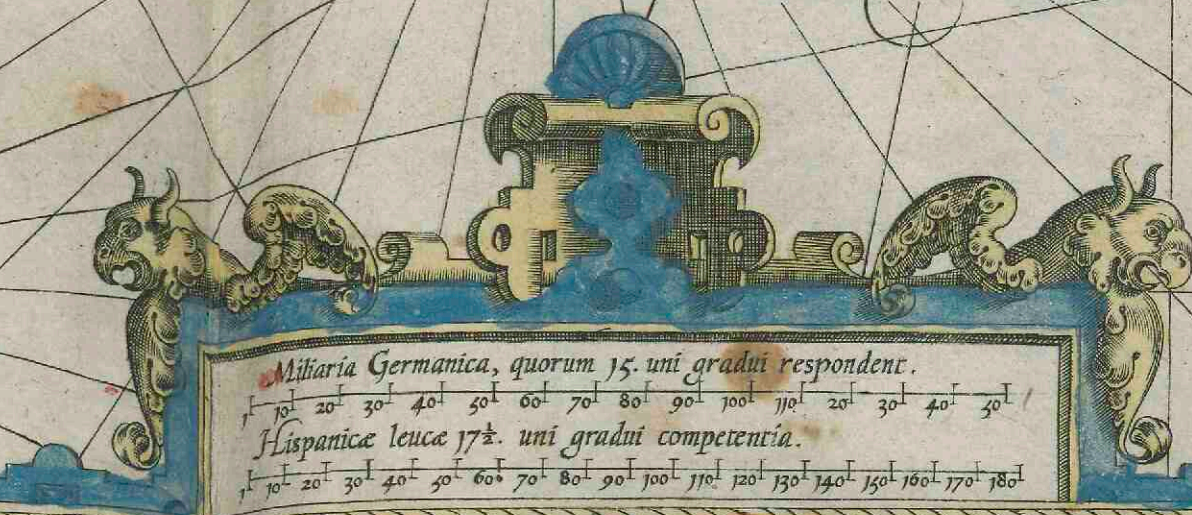 Miliaria Germanica, quorum 15. uni gradui respondent.
1 10 20 30 40 50 60 70 80 90 100 110 20 30 40 50
Hispanicæ leucæ 17½. uni gradui competentia.
1 10 20 30 40 50 60 70 80 90 100 110 120 130 140 150 160 170 180